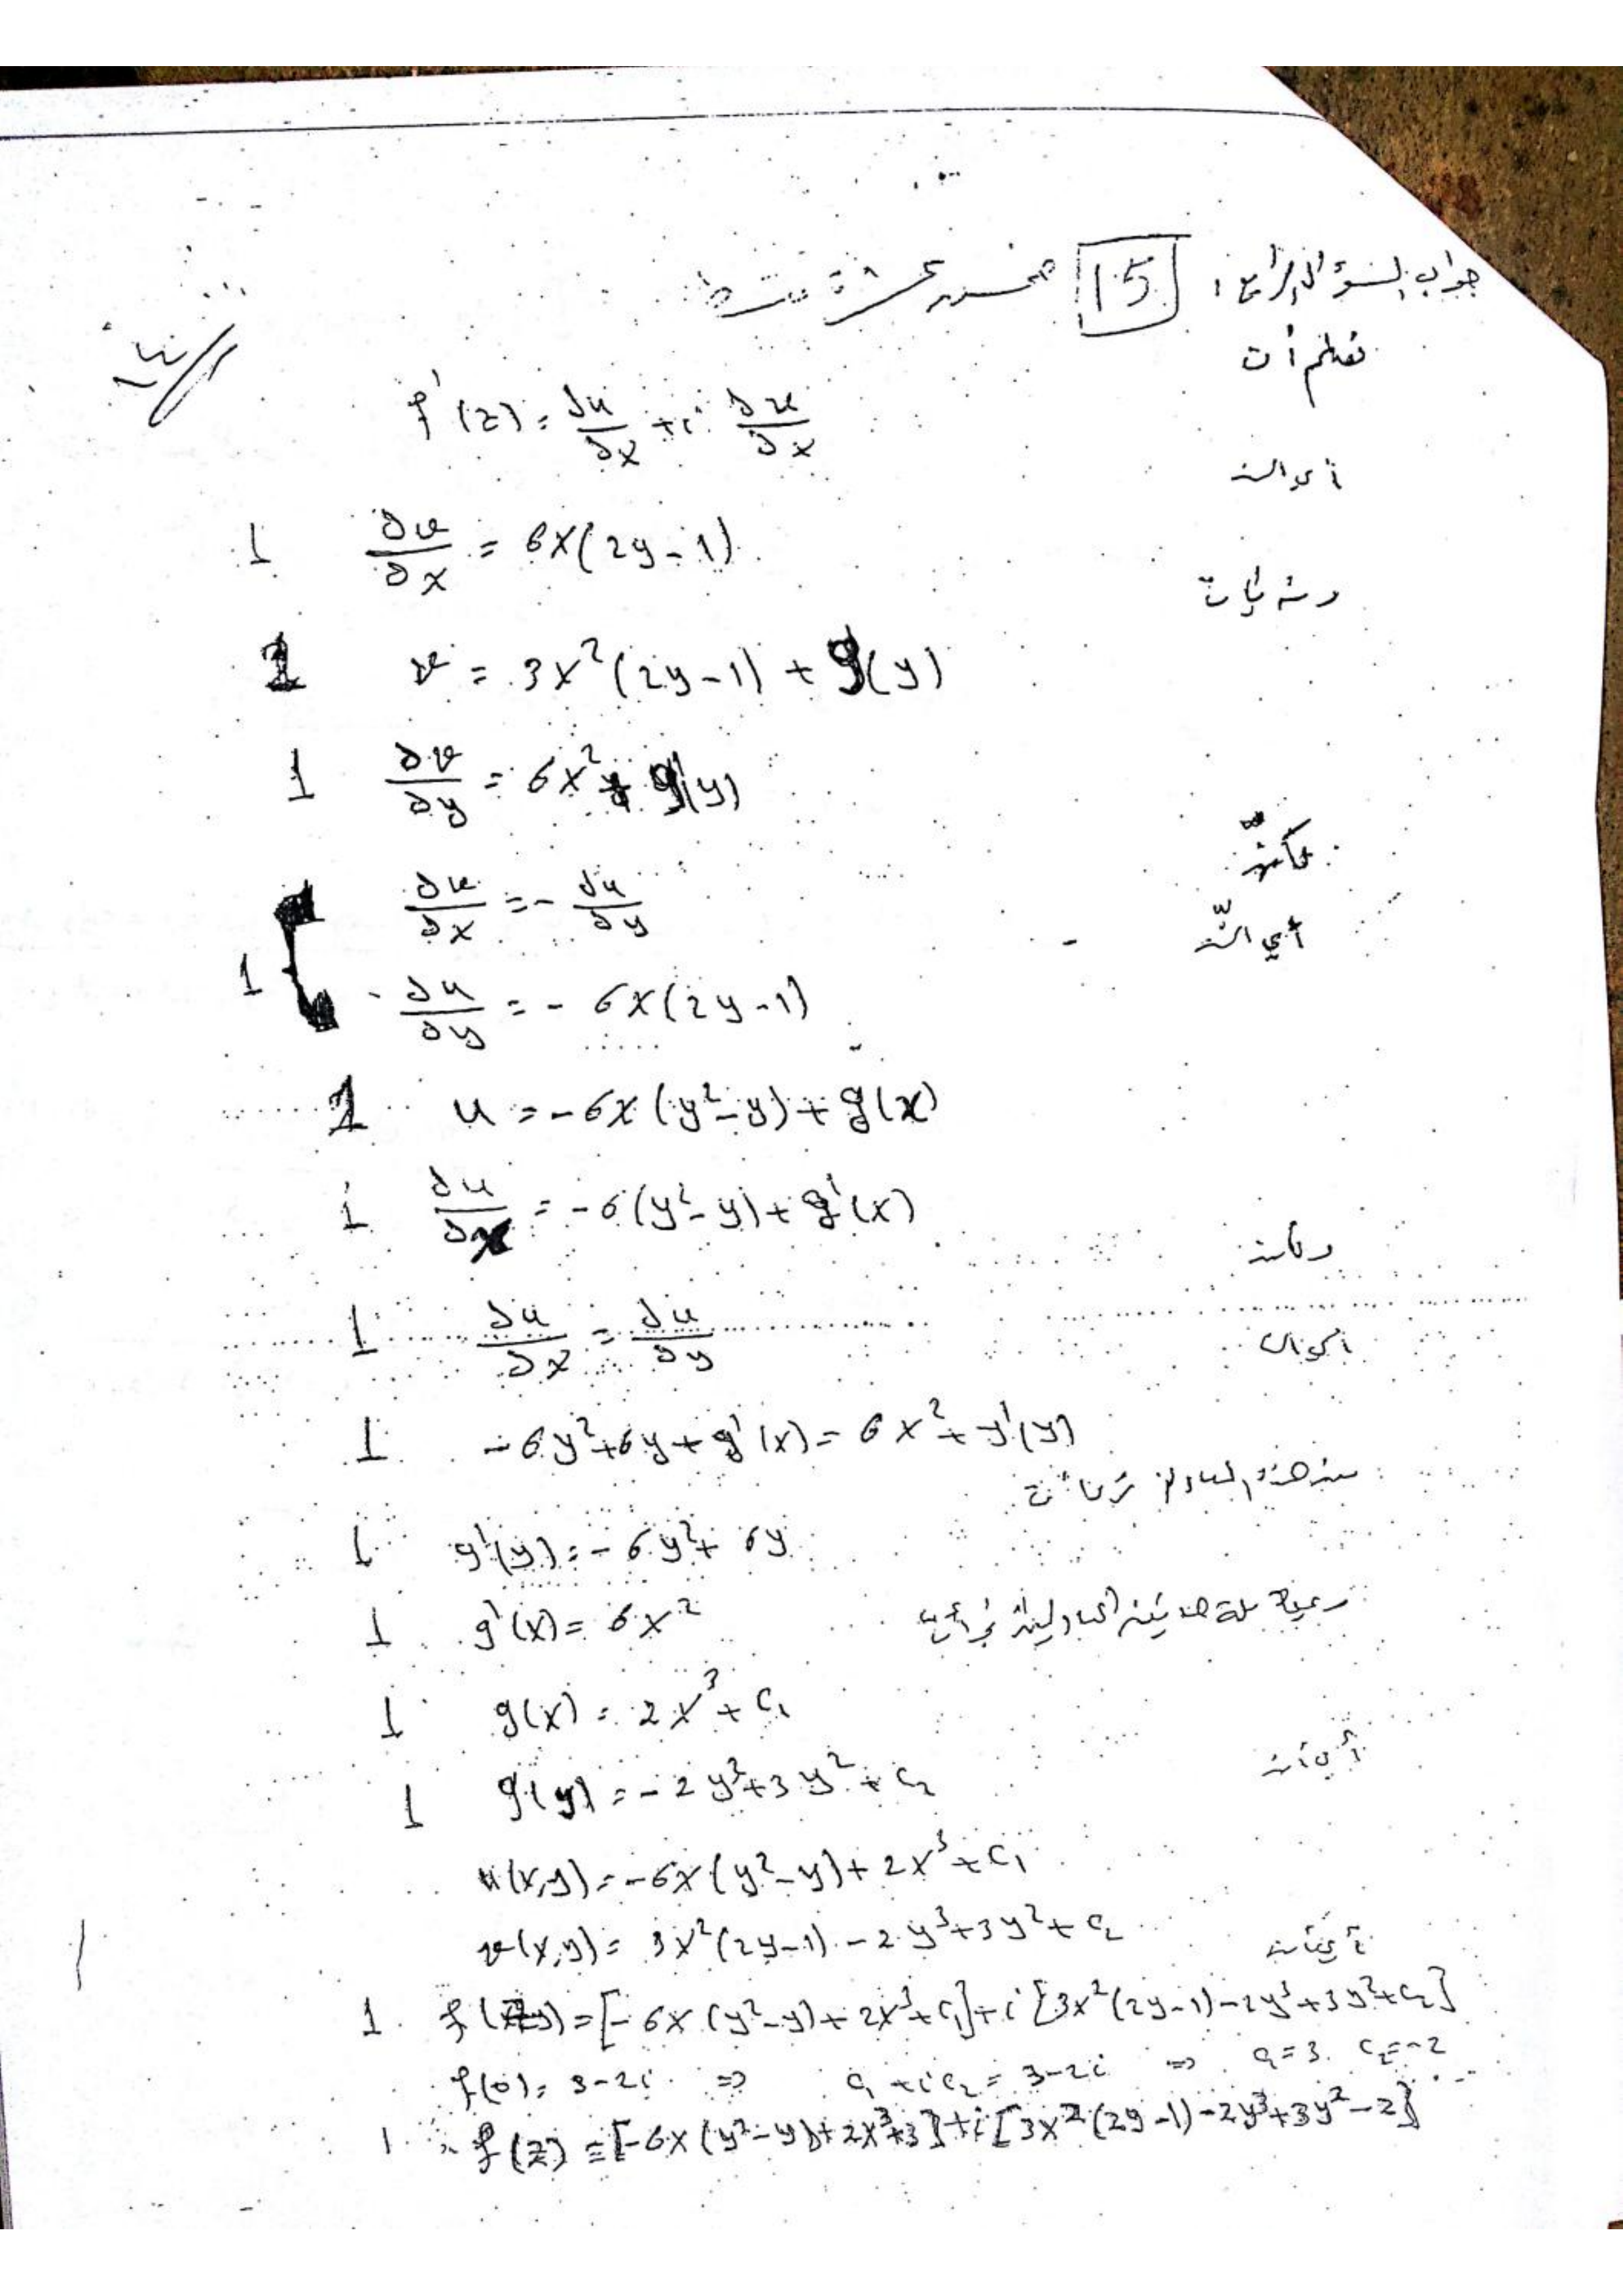 جواب السؤال الرابع : 15 خمس عشرة
نعلم أن
f'(z) = ∂u/∂x + i ∂v/∂x
أي أن
1 ∂v/∂x = 6x(2y-1)
ومنه فإن
1 v = 3x²(2y-1) + g(y)
1 ∂v/∂y = 6x² + g'(y)
∂v/∂x = - ∂u/∂y
أي أنّ
1 ∂u/∂y = - 6x(2y-1)
1 u = -6x(y²-y) + g(x)
1 ∂u/∂x = -6(y²-y) + g'(x)
1 ∂u/∂x = ∂v/∂y
أي أن
1 -6y²+6y+g'(x) = 6x²+g'(y)
من هذه المعادلة نرى أن
1 g'(y) = -6y²+6y
1 g'(x) = 6x²
1 g(x) = 2x³+c₁
1 g(y) = -2y³+3y²+c₂
أي أن
u(x,y) = -6x(y²-y)+2x³+c₁
v(x,y) = 3x²(2y-1)-2y³+3y²+c₂
أي أن
1 f(z) = [-6x(y²-y)+2x³+c₁]+i[3x²(2y-1)-2y³+3y²+c₂]
f(0) = 3-2i ⇒ c₁+ic₂ = 3-2i ⇒ c₁=3 c₂=-2
1 ∴ f(z) = [-6x(y²-y)+2x³+3]+i[3x²(2y-1)-2y³+3y²-2]